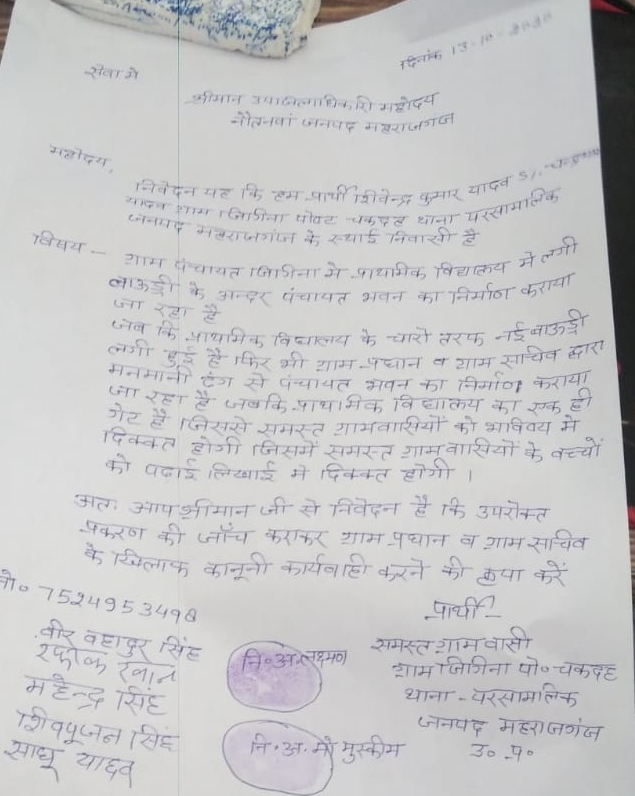 दिनांक 13-10-2020
सेवा मे
श्रीमान उपाजिलाधिकारी महोदय
नौतनवां जनपद महराजगंज
महोदय,
निवेदन यह कि हम प्रार्थी शिवेन्द्र कुमार यादव S/.
यादव ग्राम जिगिना पोस्ट चकदह थाना परसामालिक
जनपद महराजगंज के स्थाई निवासी है
विषय - ग्राम पंचायत जिगिना मे प्राथमिक विद्यालय मे लगी
बाऊड्री के अन्दर पंचायत भवन का निर्माण कराया
जा रहा है
जब कि प्राथमिक विद्यालय के चारो तरफ नई बाऊड्री
लगी हुई है फिर भी ग्राम प्रधान व ग्राम सचिव द्वारा
मनमानी ढंग से पंचायत भवन का निर्माण कराया
जा रहा है जबकि प्राथमिक विद्यालय का एक ही
गेट है जिससे समस्त ग्रामवासियों को भविष्य मे
दिक्कत होगी जिसमें समस्त ग्राम वासियों के बच्चों
को पढाई लिखाई मे दिक्कत होगी ।
अतः आप श्रीमान जी से निवेदन है कि उपरोक्त
प्रकरण की जाँच कराकर ग्राम प्रधान व ग्राम सचिव
के खिलाफ कानूनी कार्यवाही करने की कृपा करें
मो० 7524953498
वीर बहादुर सिंह
खान
महेन्द्र सिंह
शिवपूजन सिंह
साधू यादव
नि०अ.लक्ष्मण
नि.अ.मो मुस्कीम
प्रार्थी-
समस्त ग्रामवासी
ग्राम जिगिना पो० चकदह
थाना - परसामालिक
जनपद महराजगंज
उ० प्र०